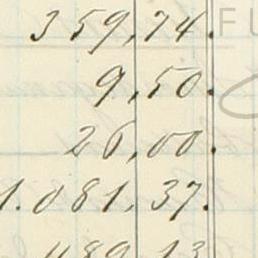 359,74.
9,50.
26,00.
1.081,37.
489,13